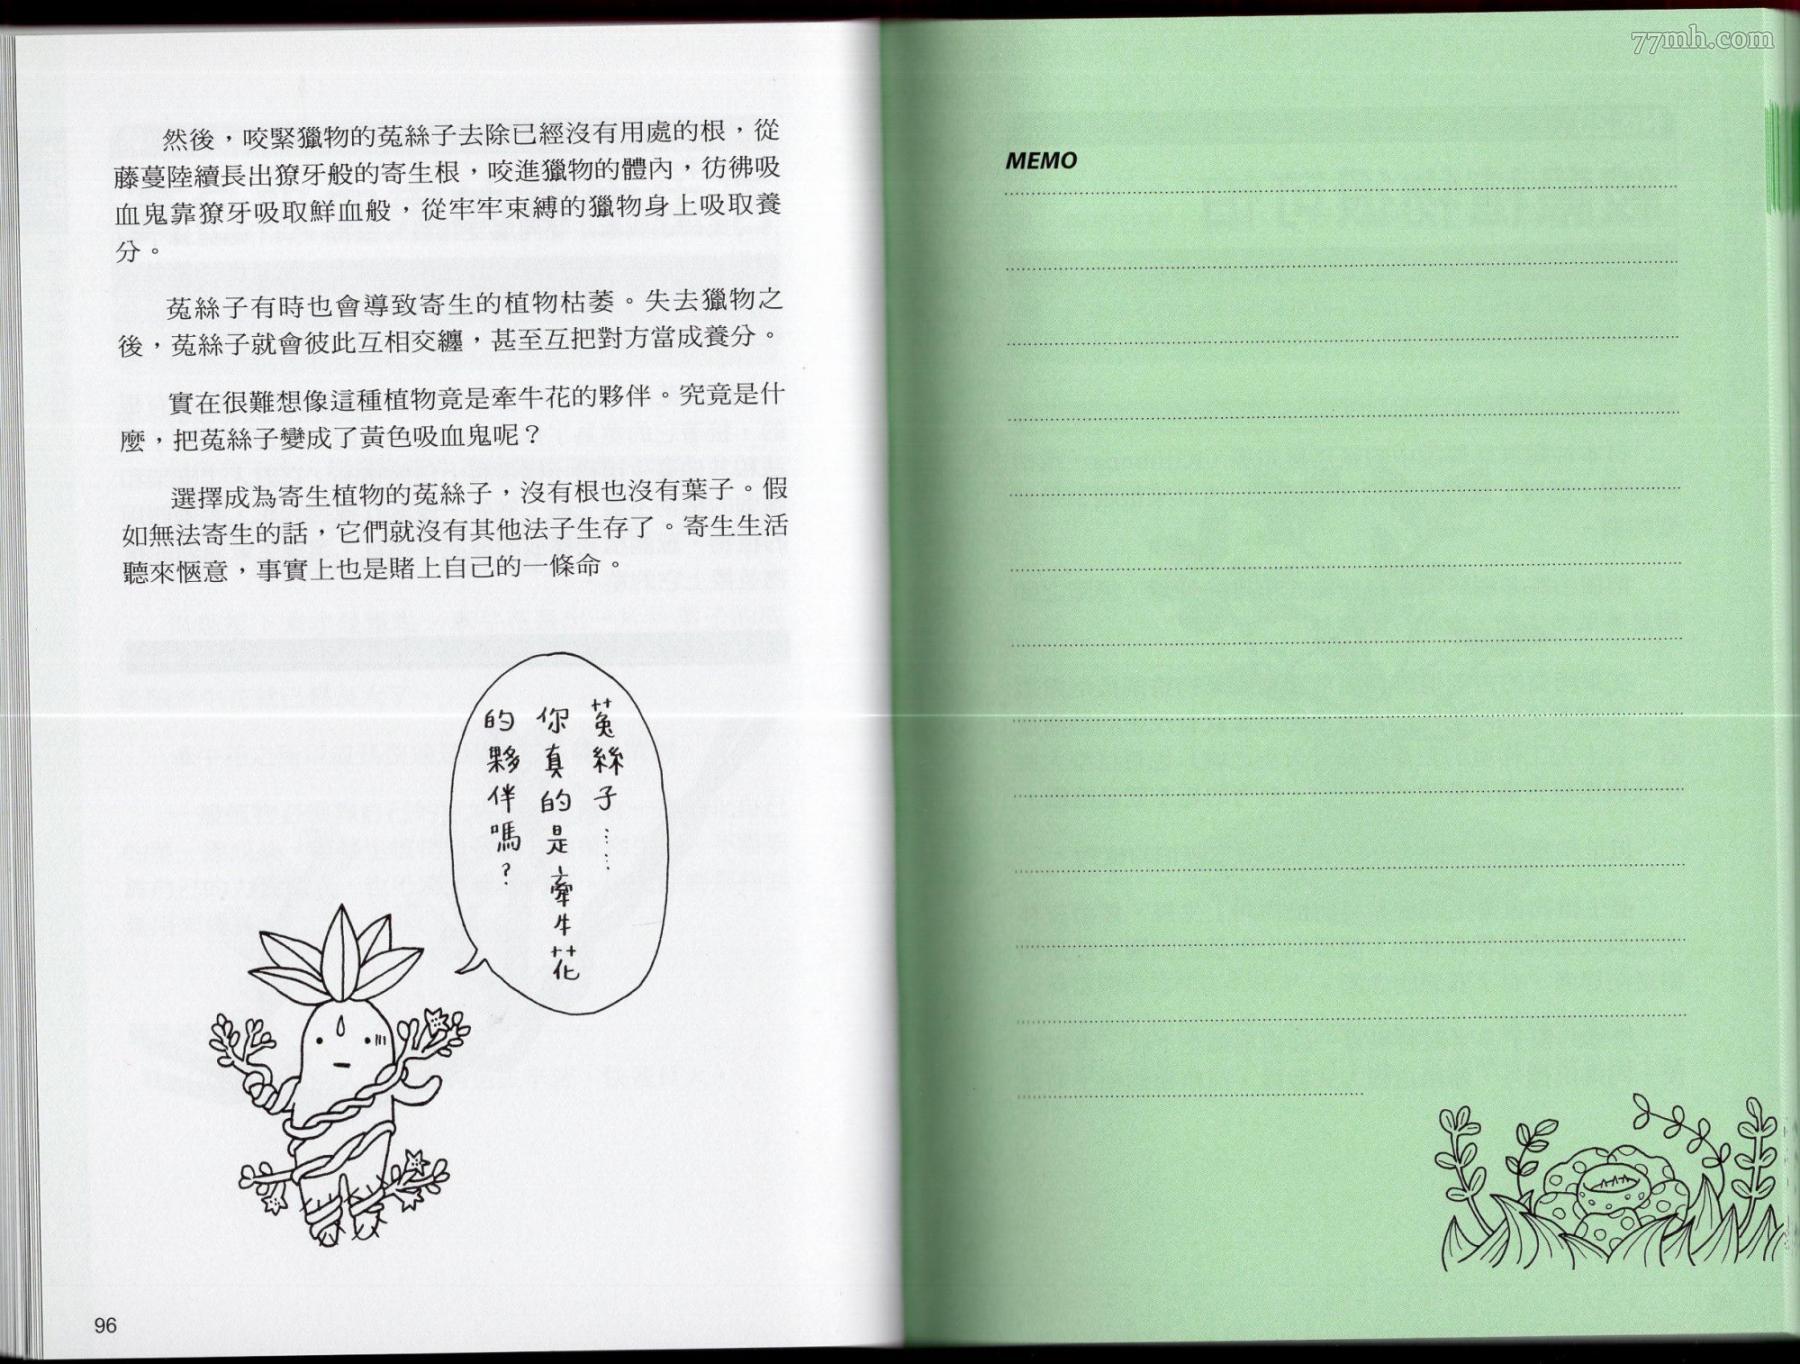 然後，咬緊獵物的菟絲子去除已經沒有用處的根，從
藤蔓陸續長出獠牙般的寄生根，咬進獵物的體內，彷彿吸
血鬼靠獠牙吸取鮮血般，從牢牢束縛的獵物身上吸取養
分。
菟絲子有時也會導致寄生的植物枯萎。失去獵物之
後，菟絲子就會彼此互相交纏，甚至互把對方當成養分。
實在很難想像這種植物竟是牽牛花的夥伴。究竟是什
麼，把菟絲子變成了黃色吸血鬼呢？
選擇成為寄生植物的菟絲子，沒有根也沒有葉子。假
如無法寄生的話，它們就沒有其他法子生存了。寄生生活
聽來愜意，事實上也是賭上自己的一條命。
菟絲子……
你真的是牽牛花
的夥伴嗎？
96
MEMO
77mh.com